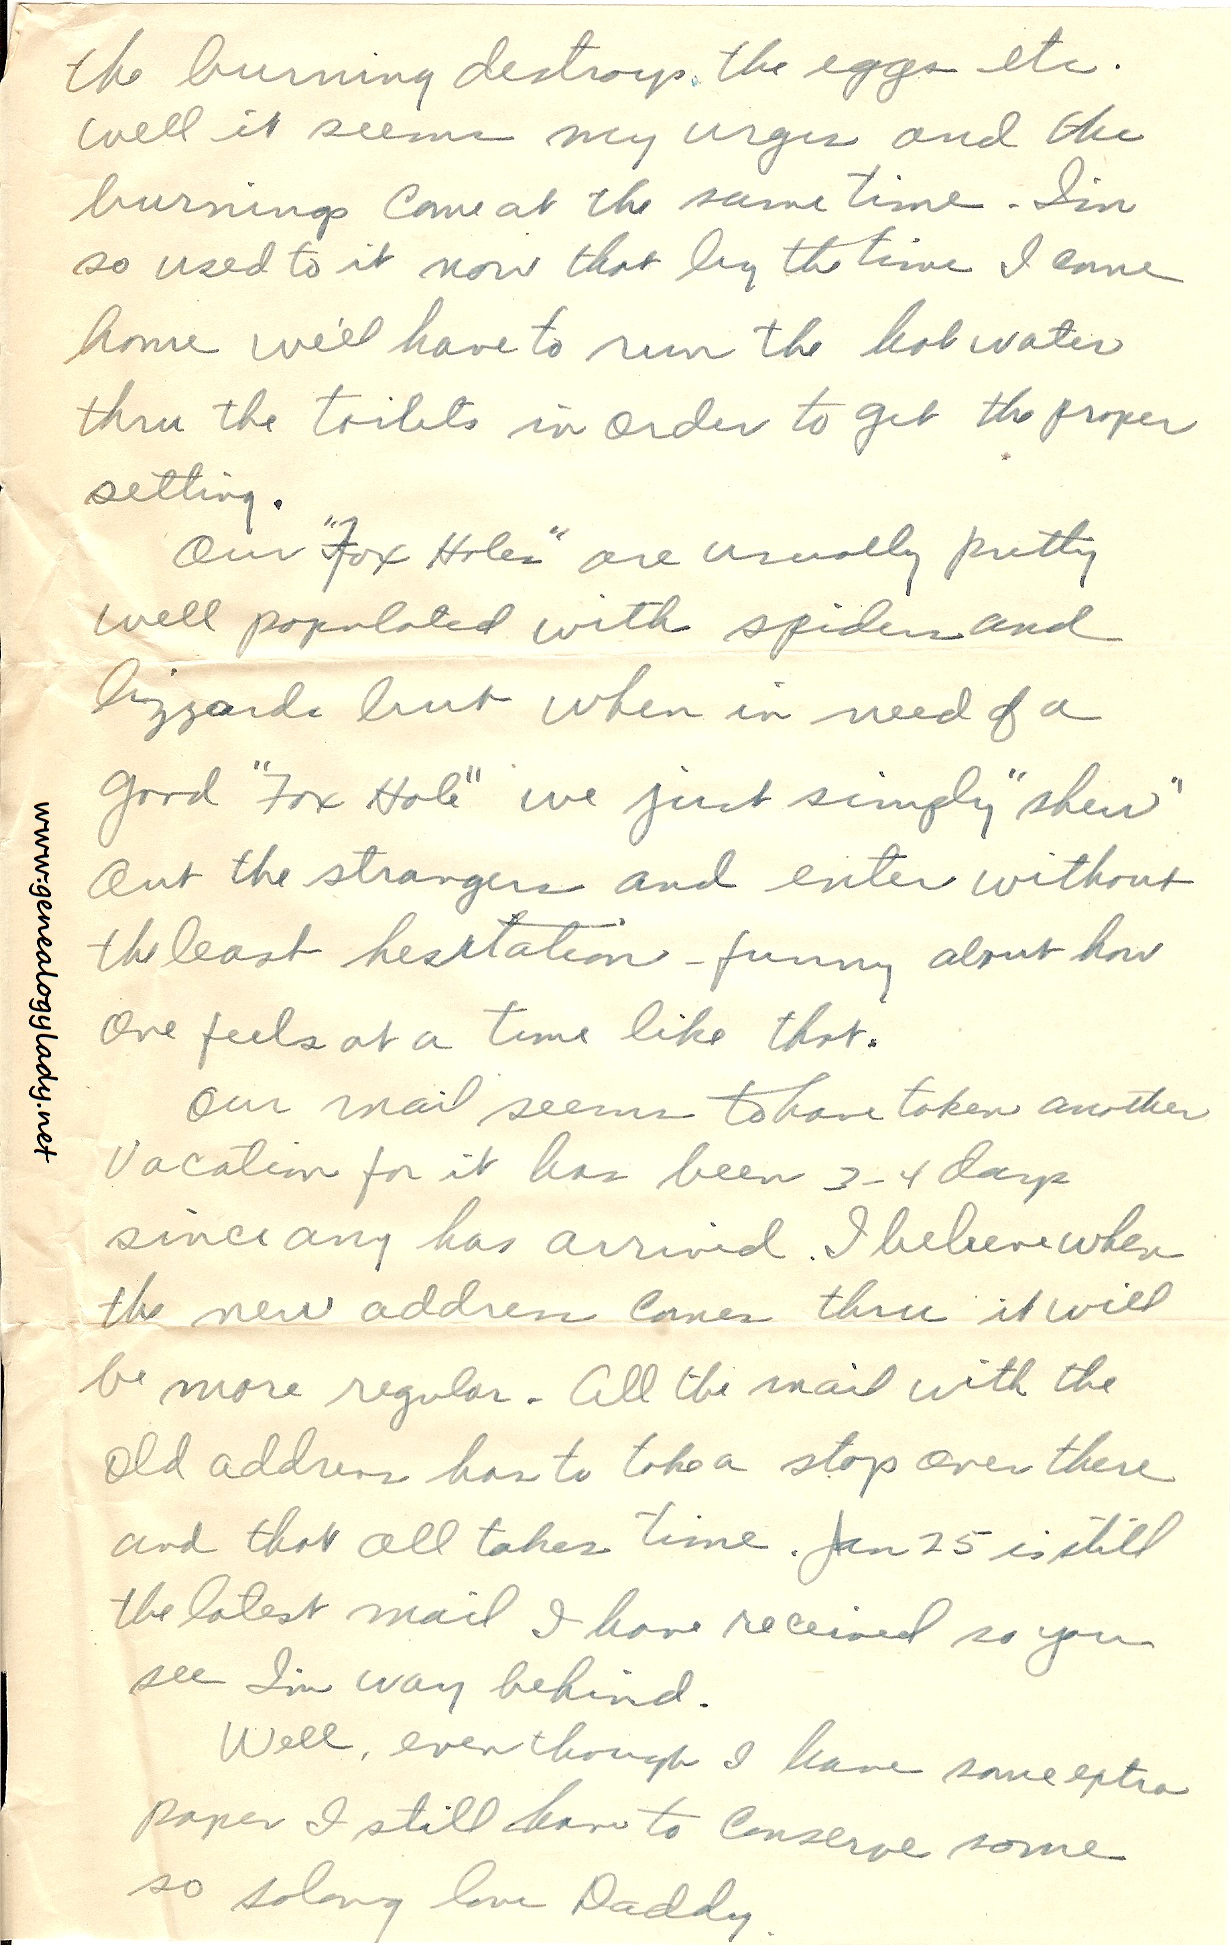 the burning destroys the eggs etc.
well it seems my urges and the
burnings come at the same time. I'm
so used to it now that by the time I come
home we'll have to run the hot water
thru the toilets in order to get the proper
setting.
Our "Fox Holes" are usually pretty
well populated with spiders and
lizzards but when in need of a
good "Fox Hole" we just simply "shew"
out the strangers and enter without
the least hesitation - funny about how
one feels at a time like that.
Our mail seems to have taken another
vacation for it has been 3-4 days
since any has arrived. I believe when
the new address comes thru it will
be more regular. All the mail with the
old address has to take a stop over there
and that all takes time. Jan 25 is still
the latest mail I have received so you
see I'm way behind.
Well, even though I have some extra
paper I still have to conserve some
so solong love Daddy.
www.genealogylady.net